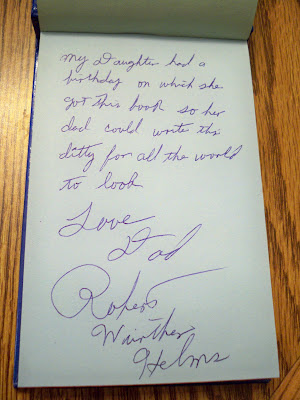 My Daughter had a
birthday on which she
got this book so her
dad could write this
ditty for all the world
to look
Love
Dad
Robert
Helms